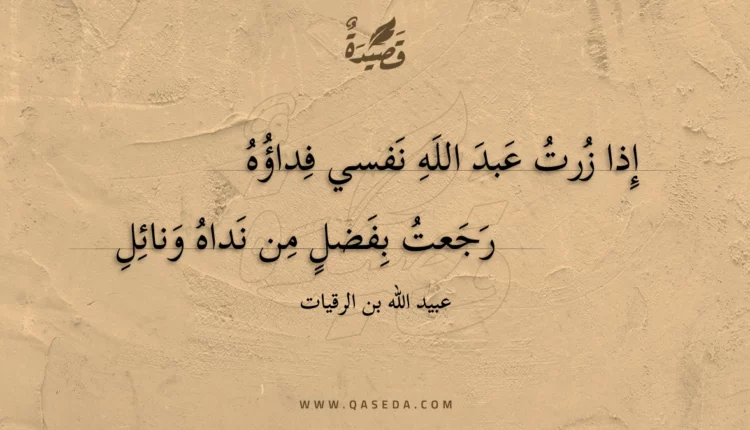 قَصِيْدَةٌ
إِذا زُرتُ عَبدَ اللَهِ نَفسي فِداؤُهُ
رَجَعتُ بِفَضلٍ مِن نَداهُ وَنائِلِ
عبيد الله بن الرقيات
WWW.QASEDA.COM